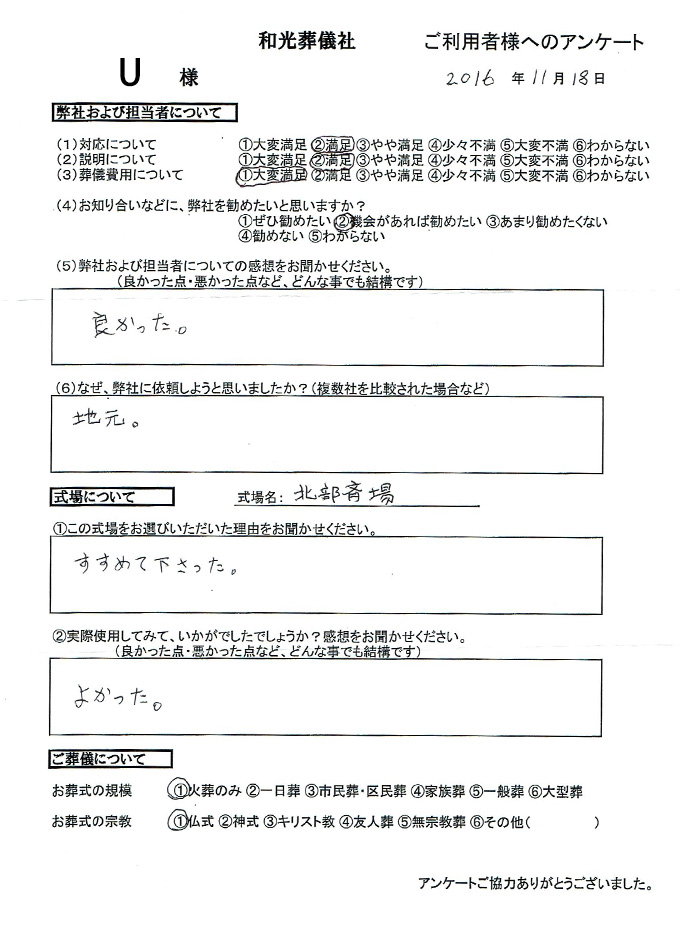 和光葬儀社　ご利用者様へのアンケート
U 様　2016 年 11月 18日
弊社および担当者について
(1)対応について　①大変満足 ②満足 ③やや満足 ④少々不満 ⑤大変不満 ⑥わからない
(2)説明について　①大変満足 ②満足 ③やや満足 ④少々不満 ⑤大変不満 ⑥わからない
(3)葬儀費用について　①大変満足 ②満足 ③やや満足 ④少々不満 ⑤大変不満 ⑥わからない
(4)お知り合いなどに、弊社を勧めたいと思いますか？
①ぜひ勧めたい ②機会があれば勧めたい ③あまり勧めたくない
④勧めない ⑤わからない
(5)弊社および担当者についての感想をお聞かせください。
（良かった点・悪かった点など、どんな事でも結構です）
良かった。
(6)なぜ、弊社に依頼しようと思いましたか？（複数社を比較された場合など）
地元。
式場について　式場名： 北部斉場
①この式場をお選びいただいた理由をお聞かせください。
すすめて下さった。
②実際使用してみて、いかがでしたでしょうか？感想をお聞かせください。
（良かった点・悪かった点など、どんな事でも結構です）
よかった。
ご葬儀について
お葬式の規模　①火葬のみ ②一日葬 ③市民葬・区民葬 ④家族葬 ⑤一般葬 ⑥大型葬
お葬式の宗教　①仏式 ②神式 ③キリスト教 ④友人葬 ⑤無宗教葬 ⑥その他（　　　　　）
アンケートご協力ありがとうございました。